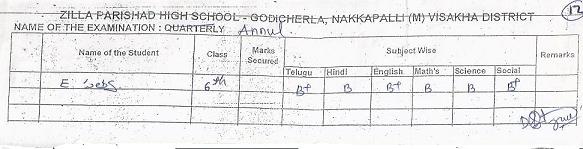 12
ZILLA PARISHAD HIGH SCHOOL - GODICHERLA, NAKKAPALLI (M) VISAKHA DISTRICT
NAME OF THE EXAMINATION : QUARTERLY Annul
Name of the Student Class Marks Secured Subject Wise Remarks
Telugu Hindi English Math's Science Social
E 6th B+ B B+ B B B+